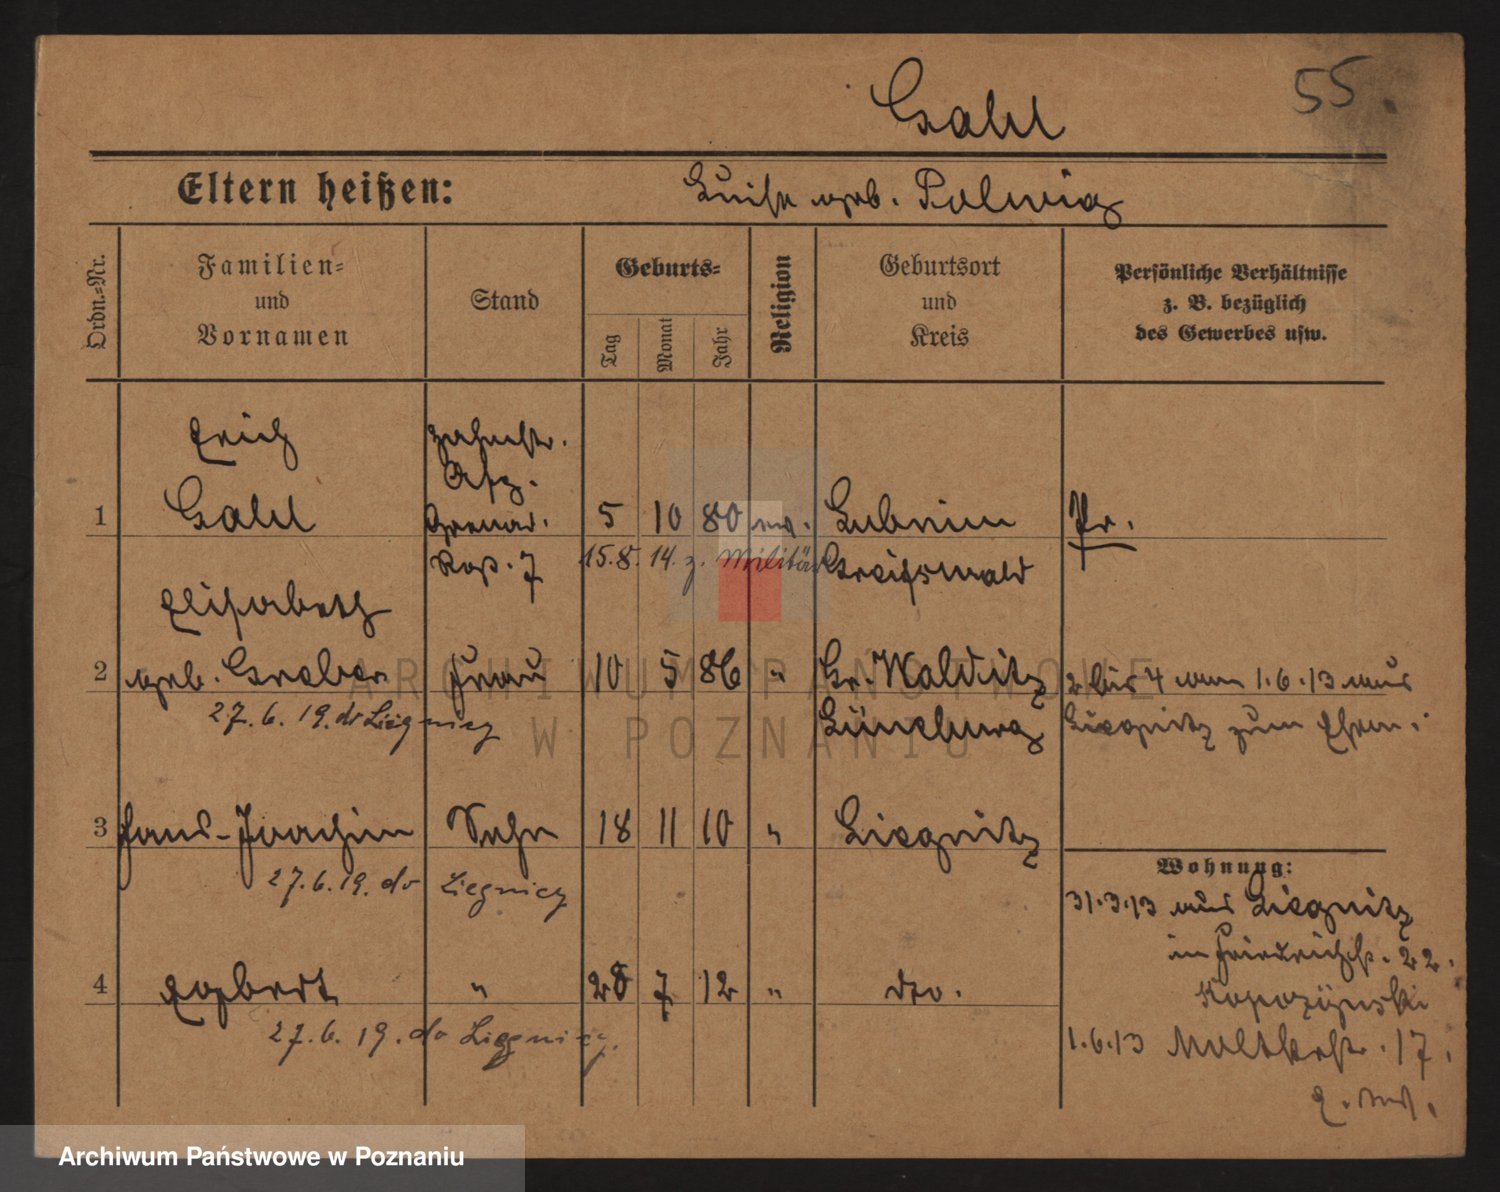 55
Gahl
Eltern heißen:
Luise geb. Polwig
Ordn.=Nr.
Familien=
und
Vornamen
Stand
Geburts=
Tag
Monat
Jahr
Religion
Geburtsort
und
Kreis
Persönliche Verhältnisse
z. B. bezüglich
des Gewerbes usw.
1
Erich
Gahl
5
10
80
ev.
Lubmin
Greifswald
Pr.
15.8. 14. z. Militär
2
Elisabeth
geb.
Frau
10
5
86
"
Gr.
Lüneburg
2 bis 4 am 1.6.13 aus
Liegnitz zum Ehem.
27.6.19. do Liegnicy
3
Hans-Joachim
Sohn
18
11
10
"
Liegnitz
27.6.19. do Liegnicy
4
Egbert
"
28
7
12
"
dto.
27.6.19. do Liegnicy.
Wohnung:
31.3.13 aus Liegnitz
in Friedrichstr. 22.
1.6.13 Moltkestr. 17.
ARCHIWUM PAŃSTWOWE
W POZNANIU
Archiwum Państwowe w Poznaniu